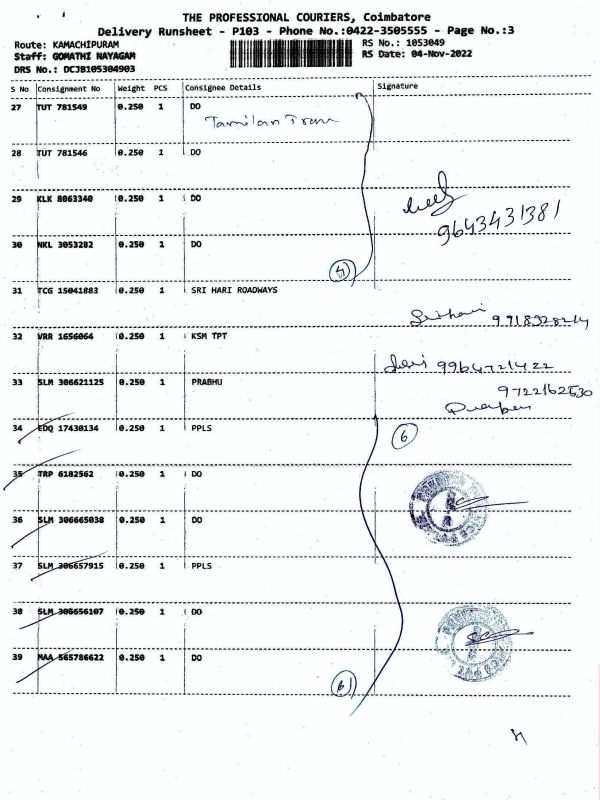 THE PROFESSIONAL COURIERS, Coimbatore
Delivery Runsheet - P103 - Phone No.:0422-3505555 - Page No.:3
Route: KAMACHIPURAM
RS No.: 1053049
Staff: GOMATHI NAYAGAM
RS Date: 04-Nov-2022
DRS No.: DCJB105304903
S No Consignment No Weight PCS Consignee Details Signature
27 TUT 781549 0.250 1 DO
Tamilan Trans
28 TUT 781546 0.250 1 DO
29 KLK 8063340 0.250 1 DO
9643431381
30 NKL 3053282 0.250 1 DO
4
31 TCG 15041883 0.250 1 SRI HARI ROADWAYS
Srihari
32 VRR 1656064 0.250 1 KSM TPT
9964721422
33 SLM 306621125 0.250 1 PRABHU
9722162630
34 EDQ 17430134 0.250 1 PPLS
6
35 TRP 6182562 0.250 1 DO
36 SLM 306665038 0.250 1 DO
37 SLM 306657915 0.250 1 PPLS
38 SLM 306656107 0.250 1 DO
39 MAA 565786622 0.250 1 DO
6